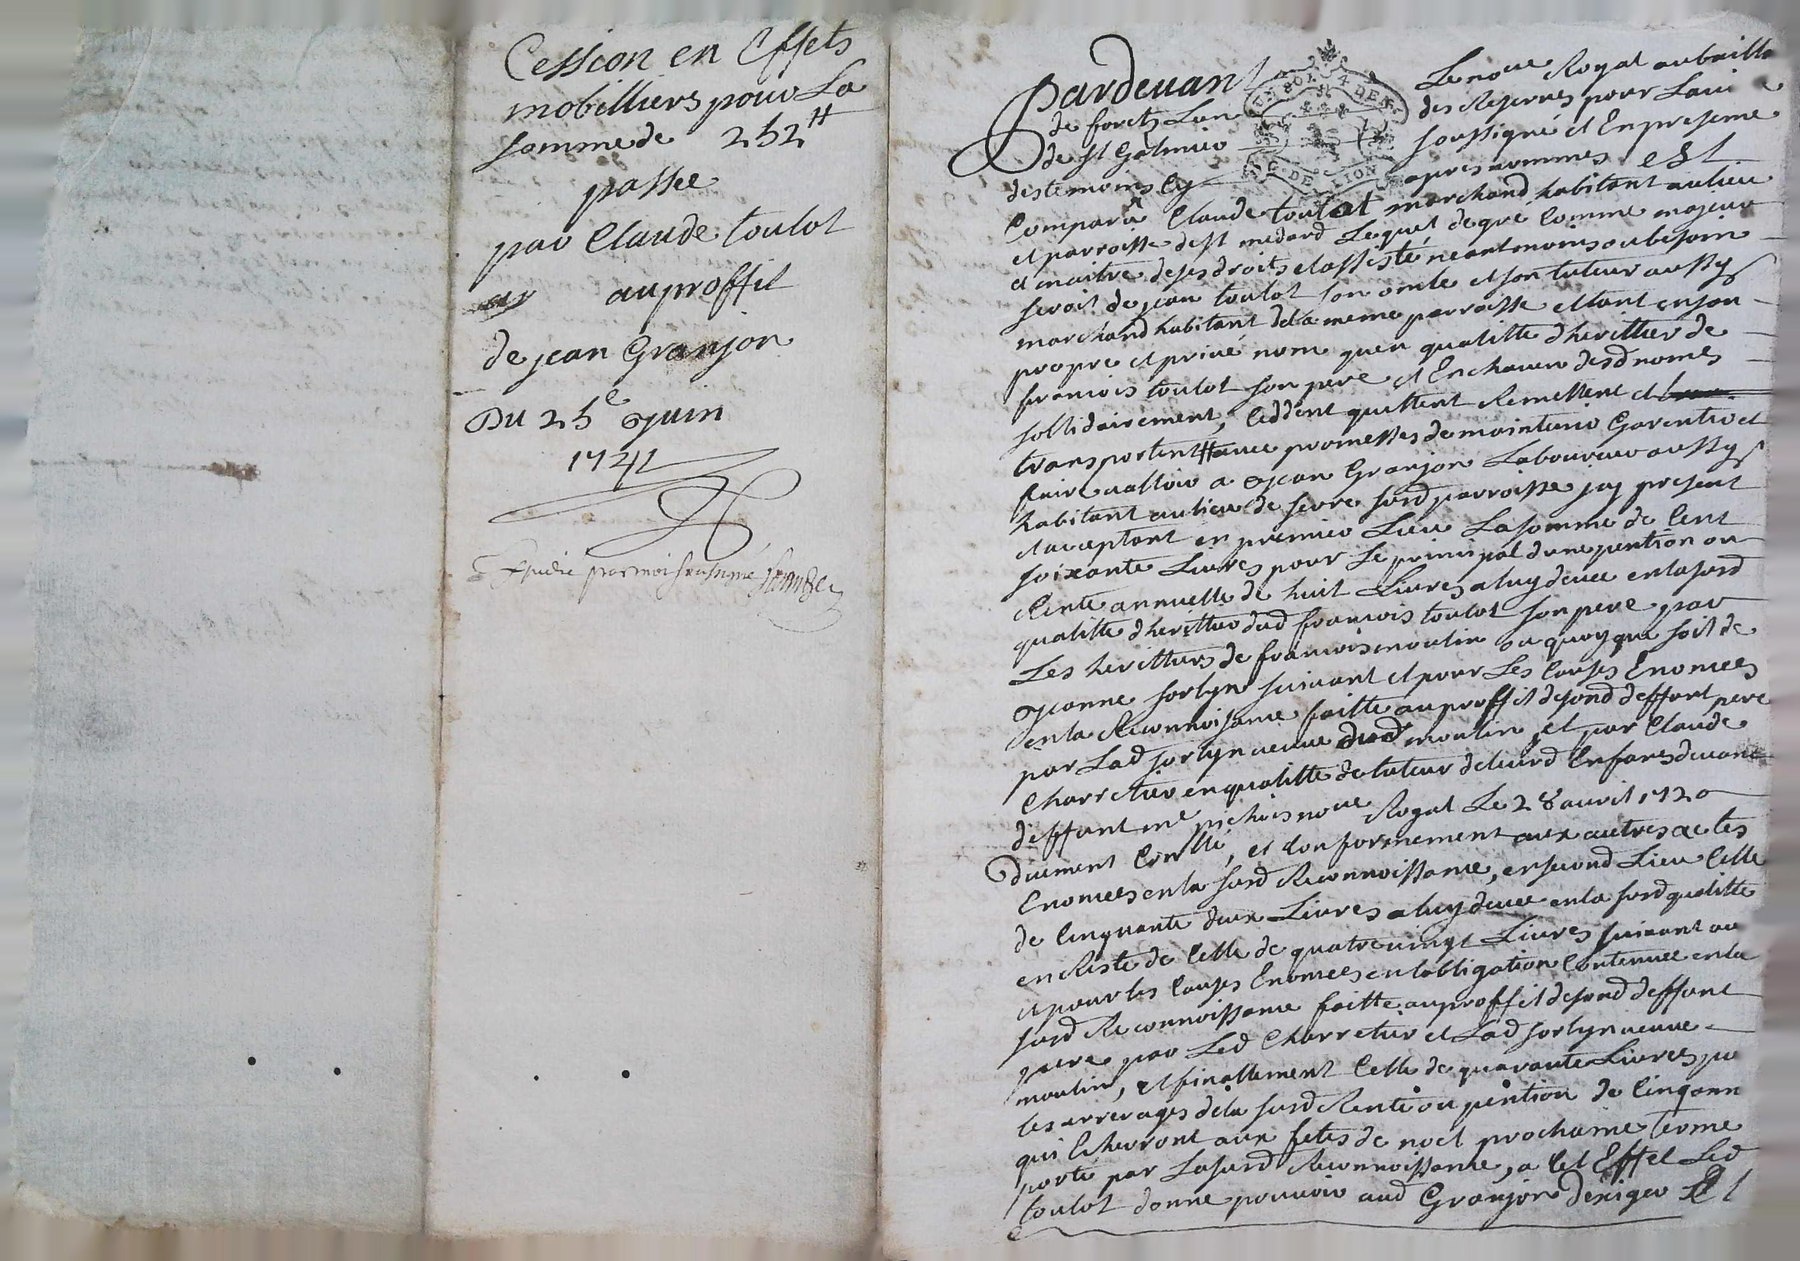 Cession en Effets
mobilliers pour La
somme de 252#
passee
par Claude toulot
au proffit
de jean Granjon
Du 25e Juin
1741
Expedié par moi soussigné
Pardevant Le nore Royal au bailla
de forets des Reserves pour
de st Galmier soussigné et En presence
des temoins cy apres nommes est
Comparu Claude toulot marchand habitant au lieu
et parroisse de st medard Lequel de gré Comme majeur
et maitre de ses droits et assisté neantmoins ou besoin
seroit de jean toulot son oncle et son tuteur aussy
marchand habitant de la meme parroisse et tant en son
propre et privé nom quen qualitte dherittier de
francois toulot son pere et En chacun desd nomes
sollidairement, Ceddent quittent Remettent et
transportent avec promesses de maintenir Garentir et
faire valloir a Jean Granjon Laboureur aussy
habitant au lieu de sevre susd parroisse jcy present
et acceptant en premier Lieu La somme de Cent
soixante Livres pour Le principal dune pention ou
Rente annuelle de huit Livres a luy deue en la susd
qualitte dherittier dud francois toulot son pere par
Les heritturs de francois moulin ou quoy que soit de
Jeanne sorlyn suivant et pour Les Causes Enoncees
en la Reconnoissance faitte au proffit de sond deffunt pere
par Lad sorlyn veuve dud moulin, et par Claude
Charretier en qualitte de tuteur de leurd Enfans devant
deffunt me pichois nore Royal Le 28 avril 1720
duement Conllé, et Conformement aux autres actes
Enoncees en la susd Reconnoissance, en second Lieu Celle
de Cinquante deux Livres a luy deue en la susd qualitte
en Reste de Celle de quatre vingt Livres suivant
et pour les Causes Enoncees en lobligation Contenue en la
susd Reconnoissance faitte au proffit de sond deffunt
pere par Led Charretier et Lad sorlyn veuve
moulin, et finallement Celle de quarante Livres
les arrerages de la susd Rente ou pention de Cinq ann
qui Echeront aux fetes de noel prochaine terme
porté par La susd Reconnoissance, a Cet Effet Led
toulot donne pouvoir aud Granjon dexiger Et